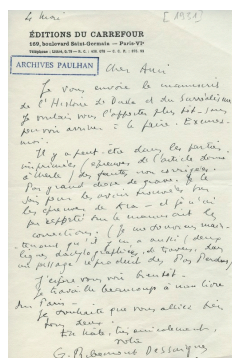 4 mai [1931]
ÉDITIONS DU CARREFOUR
169, boulevard Saint-Germain — Paris-VIe
ARCHIVES PAULHAN
Cher Ami
Je vous envoie le manuscrit
de l'Histoire de Dada et du Surréalisme
Je voulais vous l'apporter plus tôt - sans
pouvoir arriver à le faire. Excusez-
moi.
Il y a peut-être dans les parties
imprimées (épreuves de l'article donné
des fautes non corrigées.
Pas grand chose de grave. Je le
sais pour les avoir
les épreuves de - et je n'ai
pas sur le manuscrit les
corrections. (Je me souviens main-
tenant qu'il y en a aussi (deux
lignes dactylographiées, de travers, dans
un passage reproduit des Pas Perdus)
J'espère vous voir bientôt -
Je travaille beaucoup à mon livre
sur Paris -
Je souhaite que vous alliez bien
tous deux.
En hâte, très amicalement,
votre
G. Ribemont Dessaignes